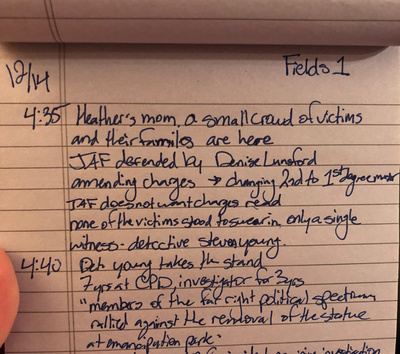 12/14
Fields 1
4:35 Heather's mom, a small crowd of victims
and their families are here
JAF defended by Denise Lunsford
amending charges → changing 2nd to 1st degree murder
JAF does not want charges read
none of the victims stood to swear in, only a single
witness - detective steven young.
4:40 Det young takes the stand
7 yrs at CPD, investigator for 3 yrs
"members of the far right political spectrum
rallied against the removal of the statue
at emancipation park."